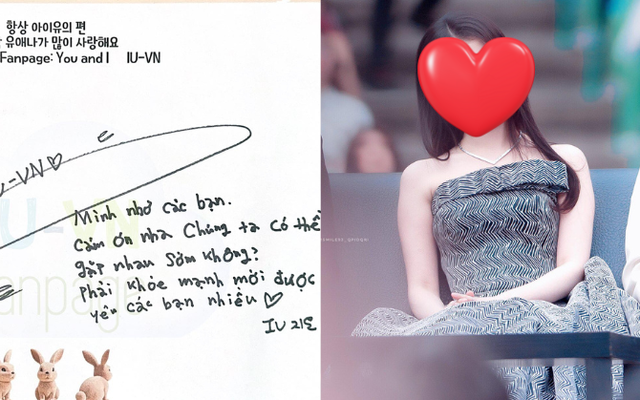 항상 아이유의 편
유애나가 많이 사랑해요
Fanpage: You and I IU-VN
U-VN♡
Mình nhớ các bạn.
Cảm ơn nha Chúng ta có thể
gặp nhau Sớm không?
Phải khỏe mạnh mới được
yêu các bạn nhiều ♡
IU
IU-VN
anpage